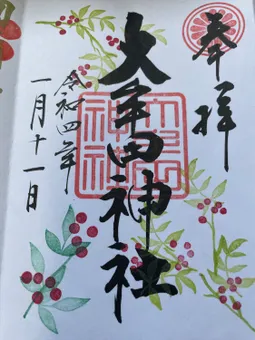 奉拝
大牟田神社
令和四年
一月十一日